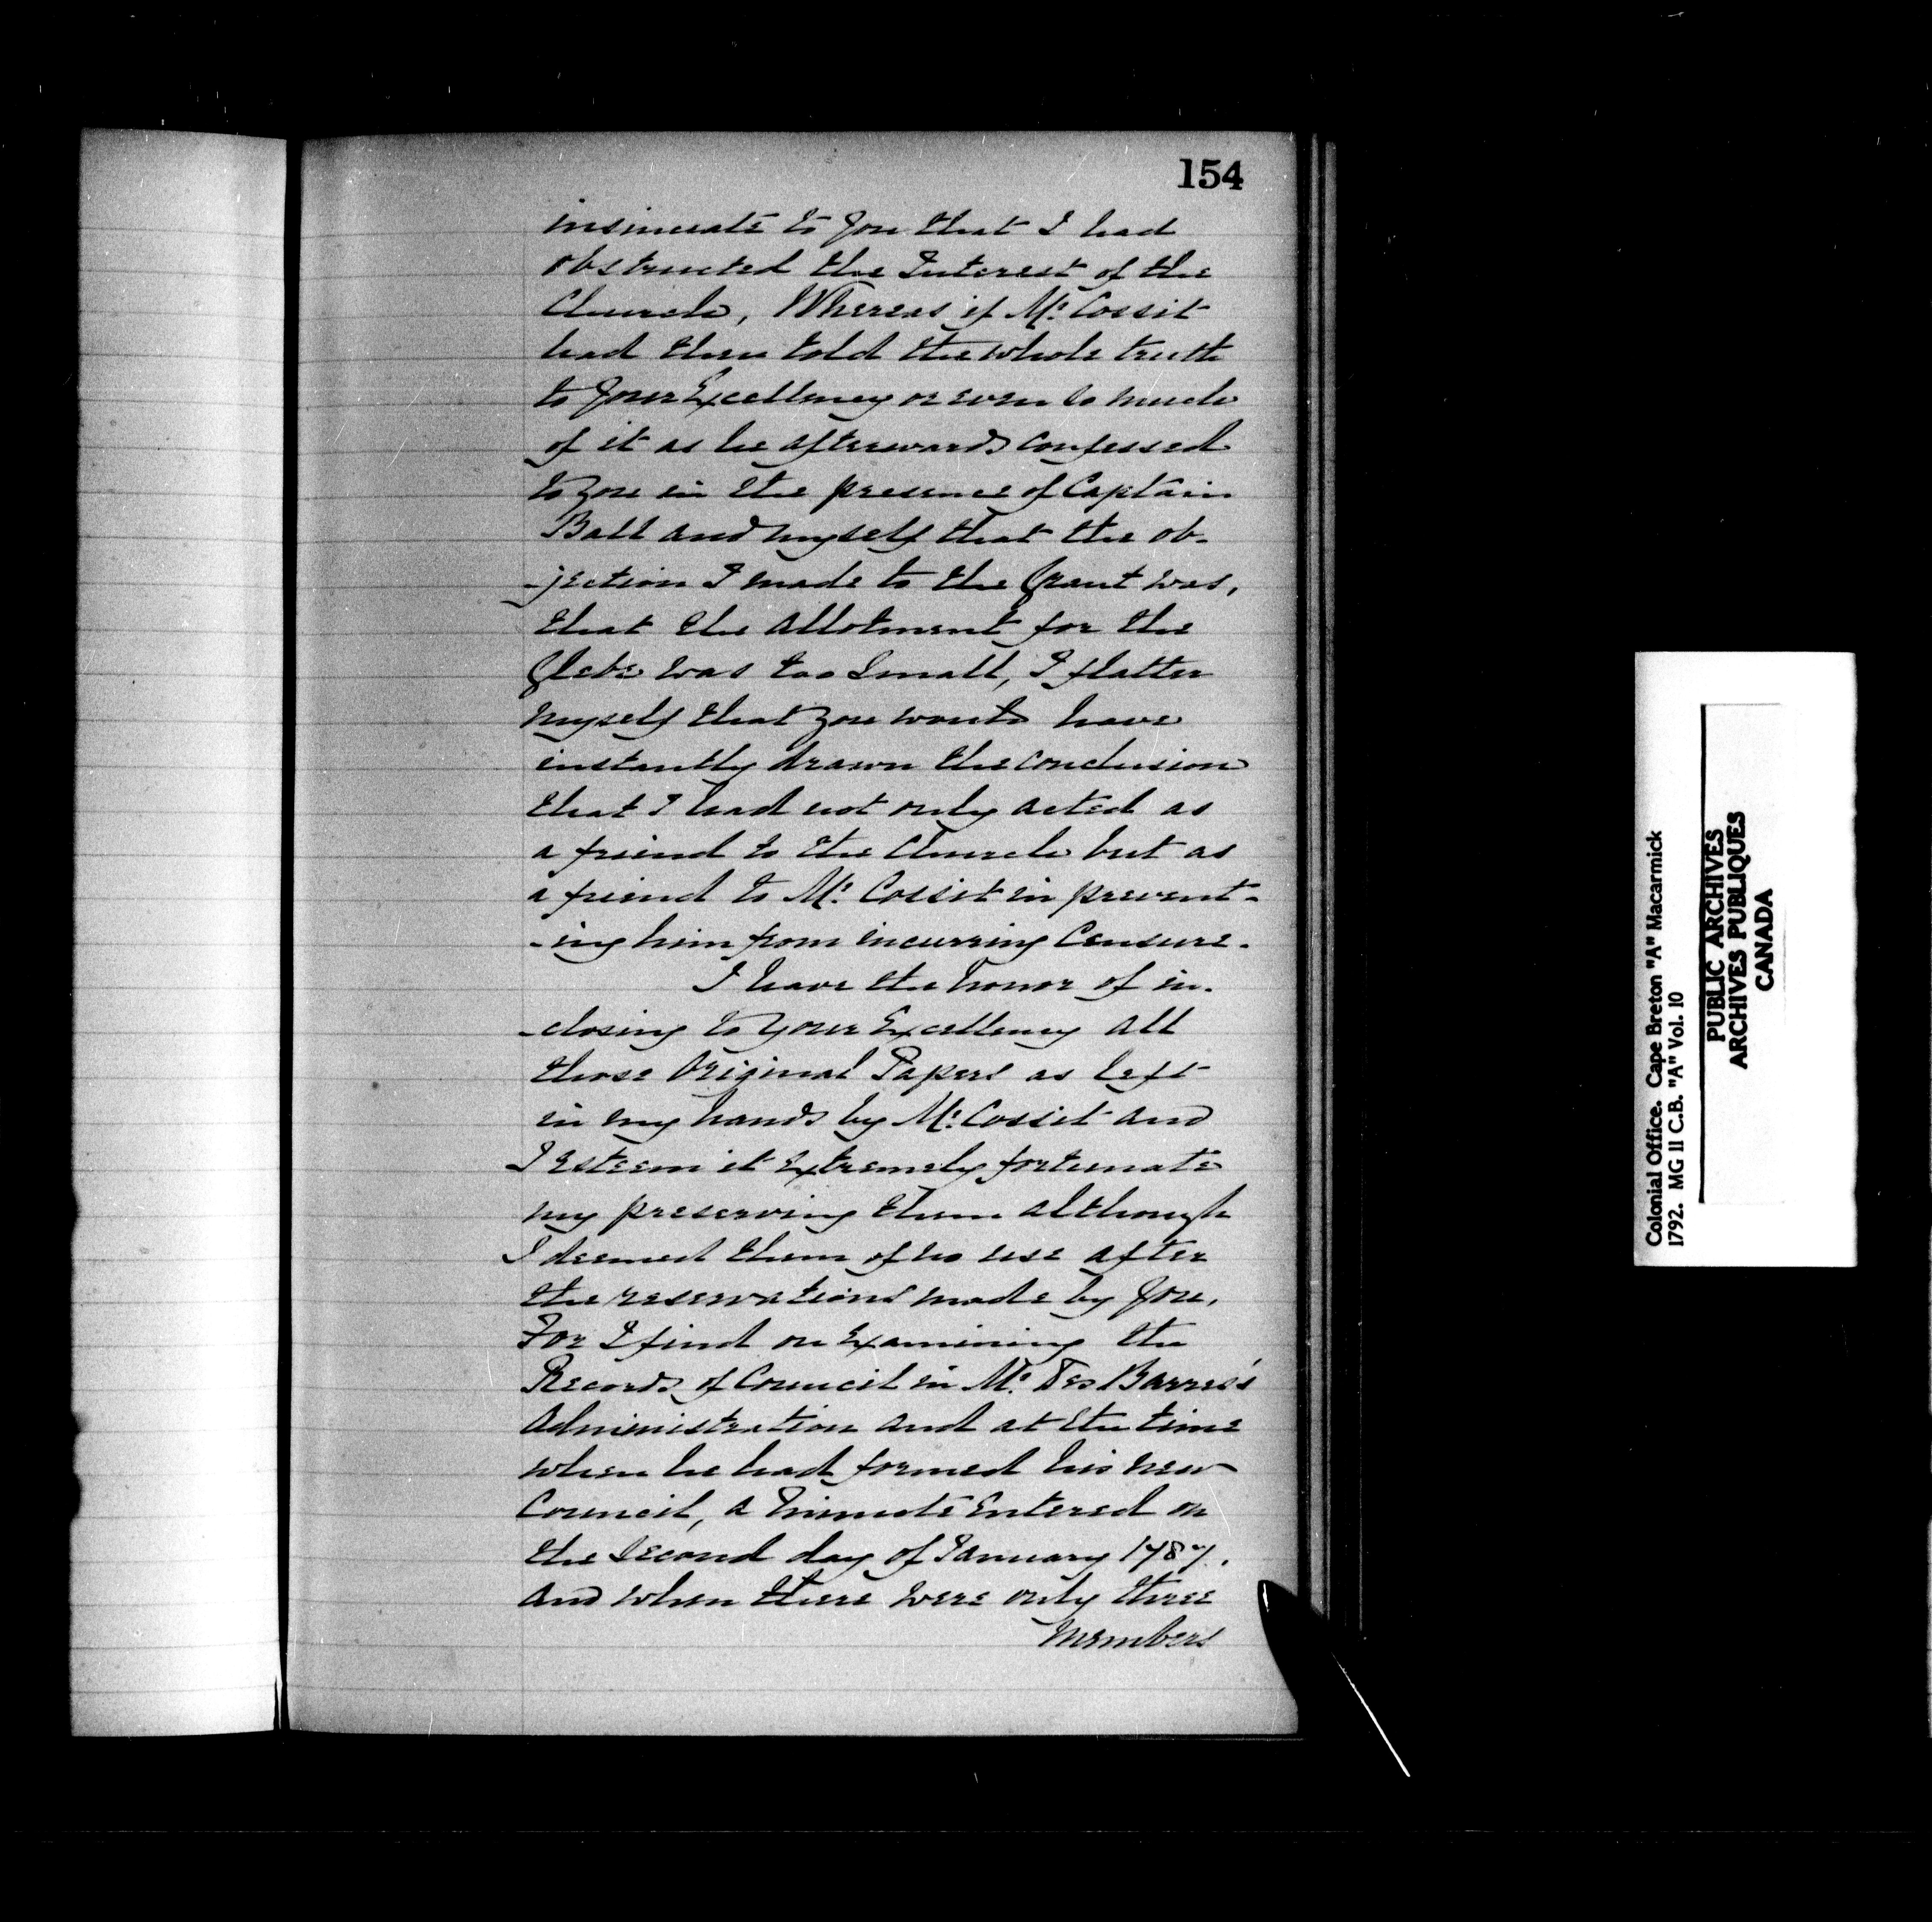 154
insinuate to you that I had
obstructed the Interest of the
Church, Whereas if Mr. Cossit
had then told the whole truth
to your Excellency or even so much
of it as he afterwards confessed
to you in the presence of Captain
Ball and myself that the ob-
-jection I made to the Grant was,
that the allotment for the
Glebe was too small, I flatter
myself that you would have
instantly drawn the conclusion
that I had not only acted as
a friend to the Church but as
a friend to Mr. Cossit in prevent-
-ing him from incurring Censure.
I have the honor of in-
-closing to your Excellency all
those Original Papers as left
in my hands by Mr. Cossit and
I esteem it extremely fortunate
my preserving them although
I deemed them of no use after
the reservations made by you.
For I find on examining the
Records of Council in Mr. Des Barres's
Administration and at the time
when he had formed his new
Council, a minute entered on
the second day of January 1787.
and when there were only three
Members
Colonial Office. Cape Breton "A" Macarmick
1792. MG 11 C.B. "A" Vol. 10
PUBLIC ARCHIVES
ARCHIVES PUBLIQUES
CANADA